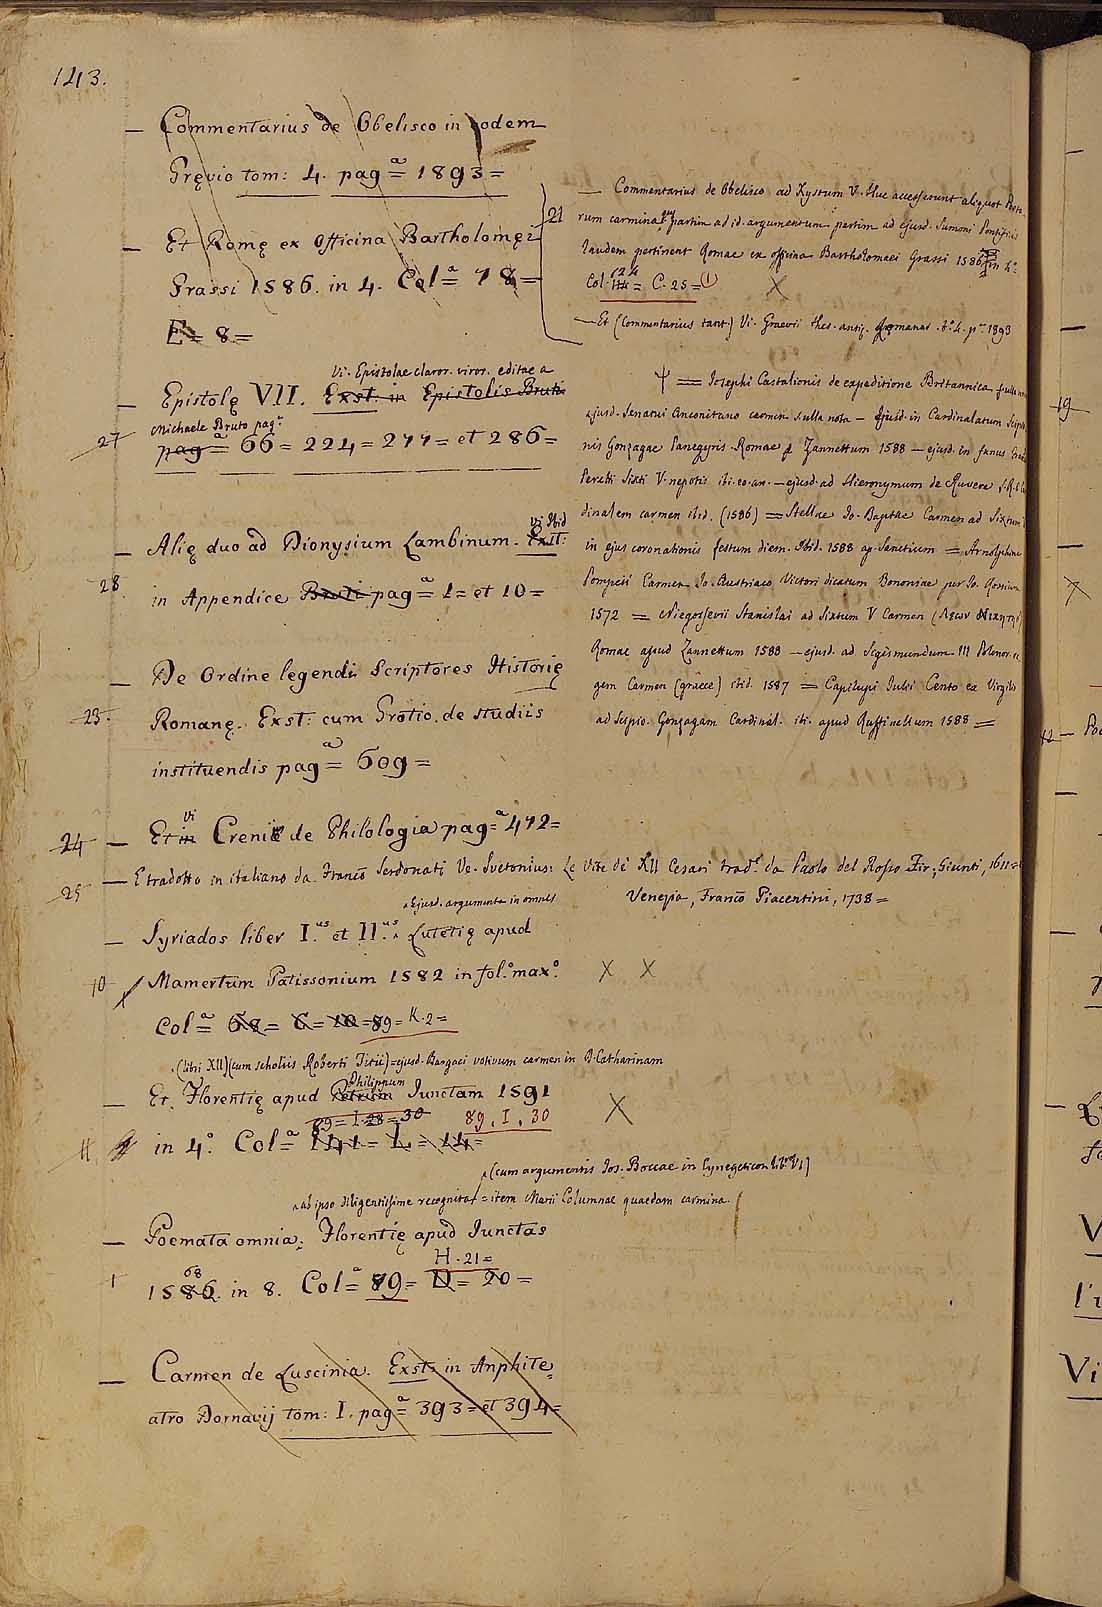 143.
— Commentarius de Obelisco in eodem
Gręvio tom: 4. pag.ª = 1893 =
— Et Romę ex Officina Bartholomęi
Grassi 1586. in 4. Colª = 78 =
E = 8 =
Vi. Epistolae claror. viror. editae a
— Epistolę VII. Exst. in Epistolis Bruti
Michaele Bruto pag.ª
27 pag.ª = 66 = 224 = 277 = et 286 =
Vi Ibid
— Alię duo ad Dionysium Lambinum. Exst:
28 in Appendice Bruti pag.ª = 1 = et 10 =
— De Ordine legendi Scriptores Historię
23. Romanę. Exst: cum Grotio de studiis
instituendis pag.ª = 609 =
vi
24 — Et in Crenii de Philologia pag.ª = 472 =
25 — E tradotto in italiano da Franco Serdonati Ve. Svetonius: Le Vite de XII Cesari trad. da Paolo del Rosso Fir. Giunti, 1611 =
Venezia, Franco Piacentini, 1738 =
Ejusd. argumenta in omnes
— Syriados liber I.us et II.us Lutetię apud
10 Mamertum Patissonium 1582 in fol.º max.º X X
Colª = 68 = C = 10 = 89 = K. 2 =
(libri XII) (cum scholiis Roberti Titii) = ejusd. Bargaei votivum carmen in D. Catharinam
Philippum
— Et. Florentię apud Petrum Junctam 1591 X
89 = I. 28 = 30 89. I. 30
11 in 4.º Colª = 141 = L = 14 =
(cum argumentis Jos. Boccae in Cynegeticon lib. VI)
ab ipso diligentissime recognita = item Marii Columnae quaedam carmina.
— Poemata omnia; Florentię apud Junctas
68 H. 21 =
1 1586. in 8. Colª = 79 = D = 20 =
— Carmen de Luscinia. Exst: in Anphite,
atro Dornavij tom: I. pag.ª = 393 = et 394 =
21 — Commentarius de Obelisco ad Xystum V. Huc accesserunt aliquot Poeta,
rum carmina quę partim ad id. argumentum partim ad ejusd. Summi Pontificis
laudem pertinent Romae ex officina Bartholomaei Grassi 1586 in 4.º
124
Col. 114 = C. 25 = (1) X
— Et (Commentarius tant.) Vi. Graevii thes. antiq. Romanar. t.º 4. p. 1893
Ψ = Josephi Castalionis de expeditione Britannica nulla nota
ejusd. Senatui Anconitano carmen nulla nota — Ejusd. in Cardinalatum Scipio
nis Gonzagae Panegyris. Romae ap. Zannettum 1588 — ejusd. in funus
Peretti Sixti V. nepotis ibi. eo. an. — ejusd. ad Hieronymum de Ruvere S.R.E. Car
dinalem carmen ibid. (1586) = Stellae Jo. Baptae Carmen ad Sixtum V
in ejus coronationis festum diem. Ibid. 1588 ap. Sanctium = Arnolphini
Pompeii Carmen Jo. Austriaco Victori dicatum Bononiae per Jo. Rossium
1572 = Niegossevii Stanislai ad Sixtum V Carmen (Λεων Νικητης)
Romae apud Zannettum 1588 — ejusd. ad Sigismundum III Polonor. re
gem Carmen (graece) ibid. 1587 = Capilupi Julii Cento ex Virgilio
ad Scipio. Gonzagam Cardinal. ibi. apud Ruffinellum 1588 =